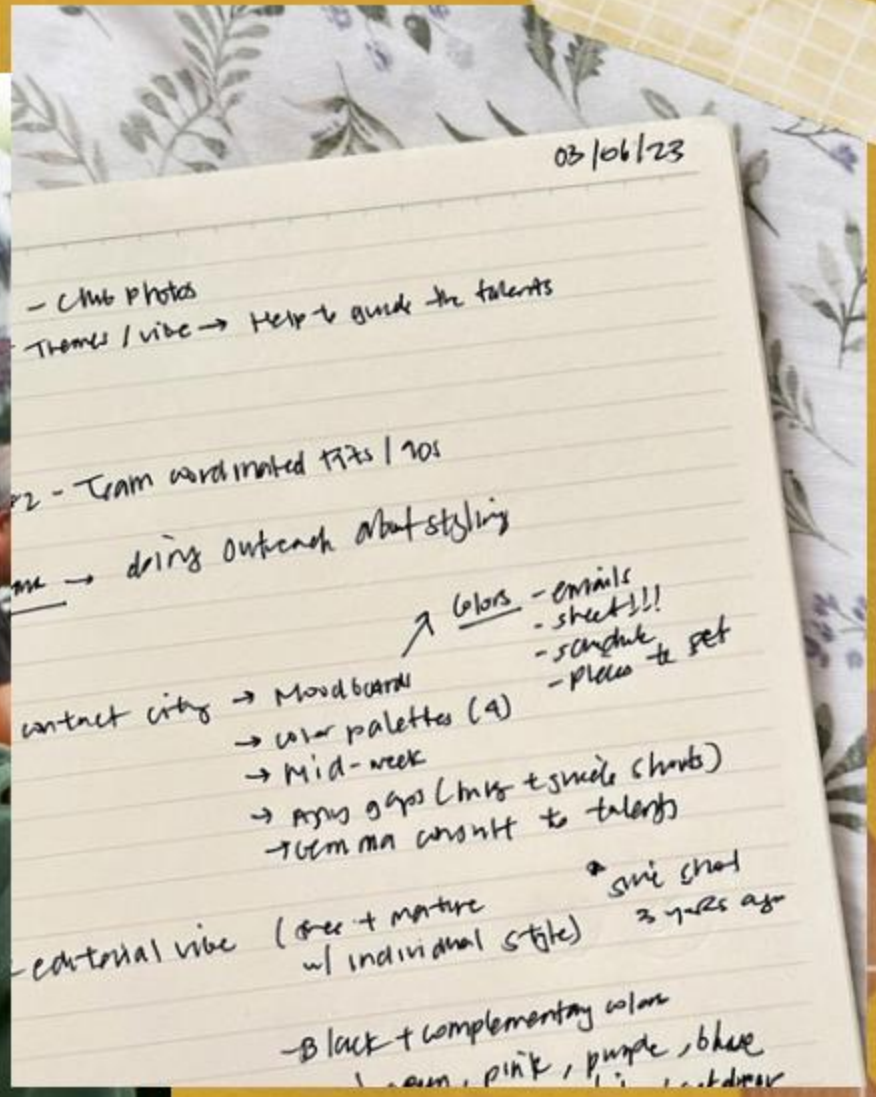 03/06/23
- Club Photos
Themes / vibe → Help to guide the talents
2 - Team coordinated fits / 90s
→ doing outreach about styling
Colors - emails
- sheet!!!
- schedule
- pieces to get
contact city → Moodboards
→ color palettes (4)
→ Mid-week
→ gaps ( + )
→ Gemma consult to talents
- editorial vibe ( + mature
w/ individual style)
3 years ago
- Black + complementary colors
, pink, purple, blue